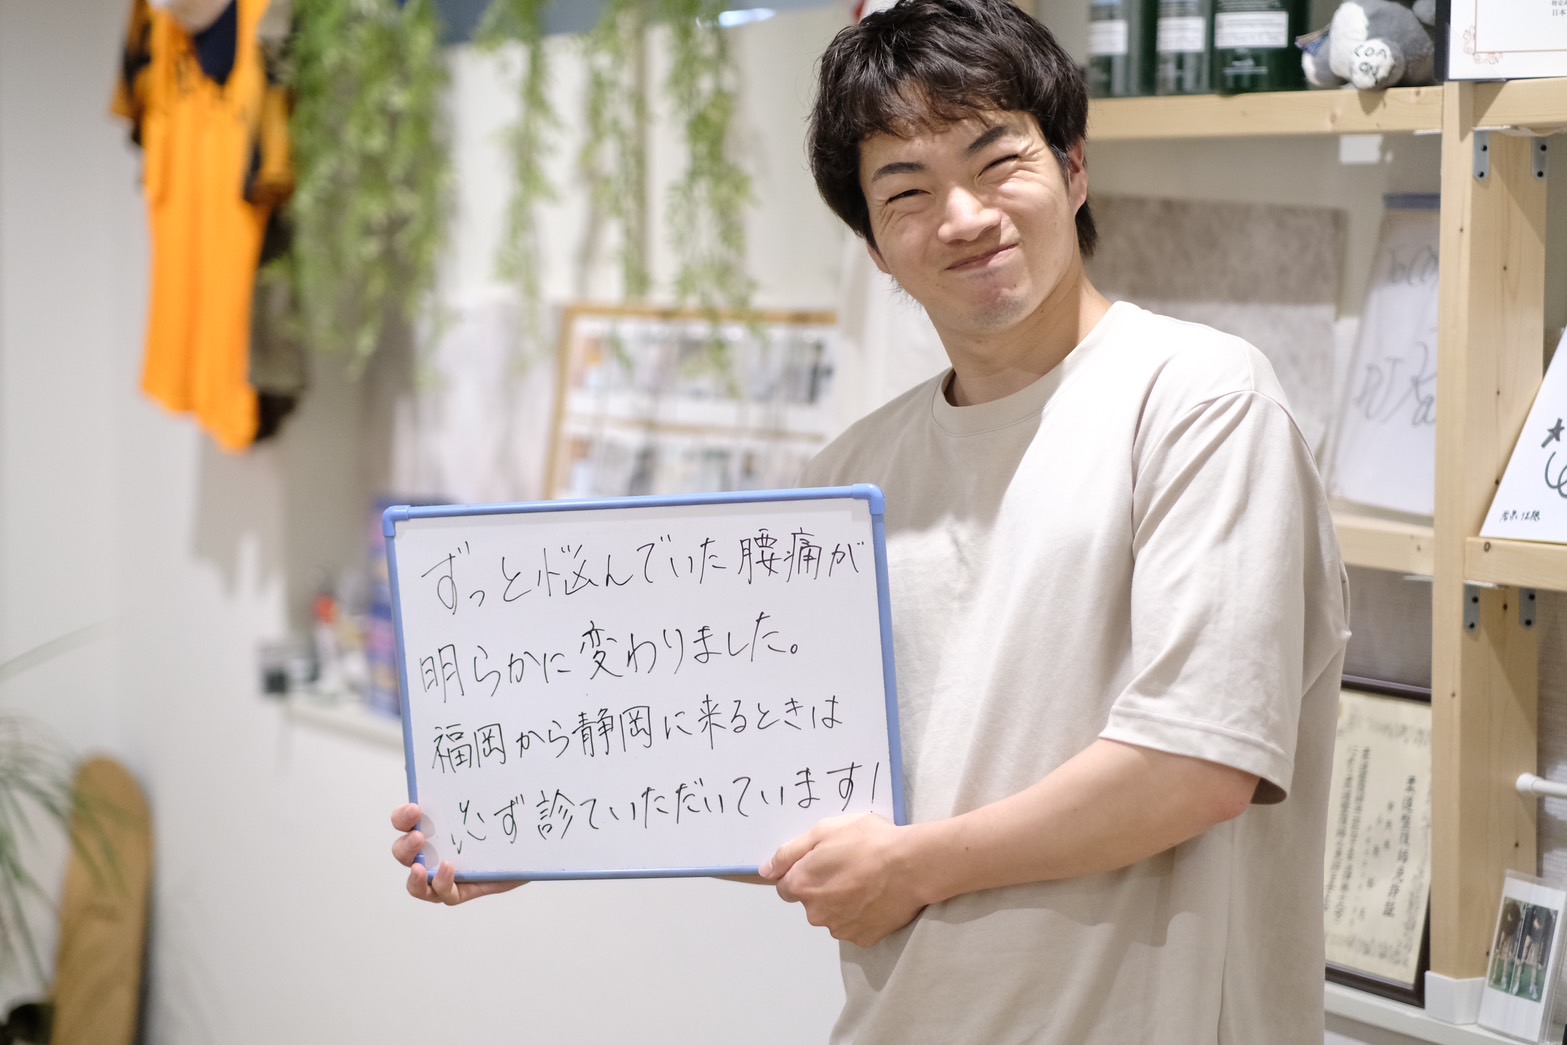 ずっと悩んでいた腰痛が
明らかに変わりました。
福岡から静岡に来るときは
必ず診ていただいています!